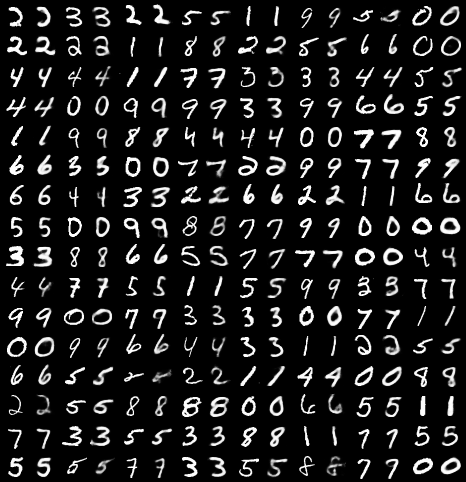 2 2 3 3 2 2 5 5 1 1 9 9 5 5 0 0
2 2 2 2 1 1 8 8 2 2 5 5 6 6 0 0
4 4 4 4 1 1 7 7 3 3 3 3 4 4 5 5
4 4 0 0 9 9 9 9 3 3 9 9 6 6 5 5
1 1 9 9 8 8 4 4 4 4 0 0 7 7 8 8
6 6 3 3 0 0 7 7 2 2 9 9 7 7 9 9
6 6 4 4 3 3 2 2 6 6 2 2 1 1 6 6
5 5 0 0 9 9 8 8 7 7 9 9 0 0 0 0
3 3 8 8 6 6 5 5 7 7 7 7 0 0 4 4
4 4 7 7 5 5 1 1 5 5 9 9 3 3 7 7
9 9 0 0 7 7 3 3 3 3 0 0 7 7 1 1
0 0 9 9 6 6 4 4 3 3 1 1 2 2 5 5
6 6 5 5 2 2 1 1 4 4 0 0 8 8
2 2 5 5 8 8 8 8 0 0 6 6 5 5 1 1
7 7 3 3 5 5 3 3 8 8 1 1 7 7 5 5
5 5 5 5 7 7 3 3 5 5 8 8 7 7 0 0